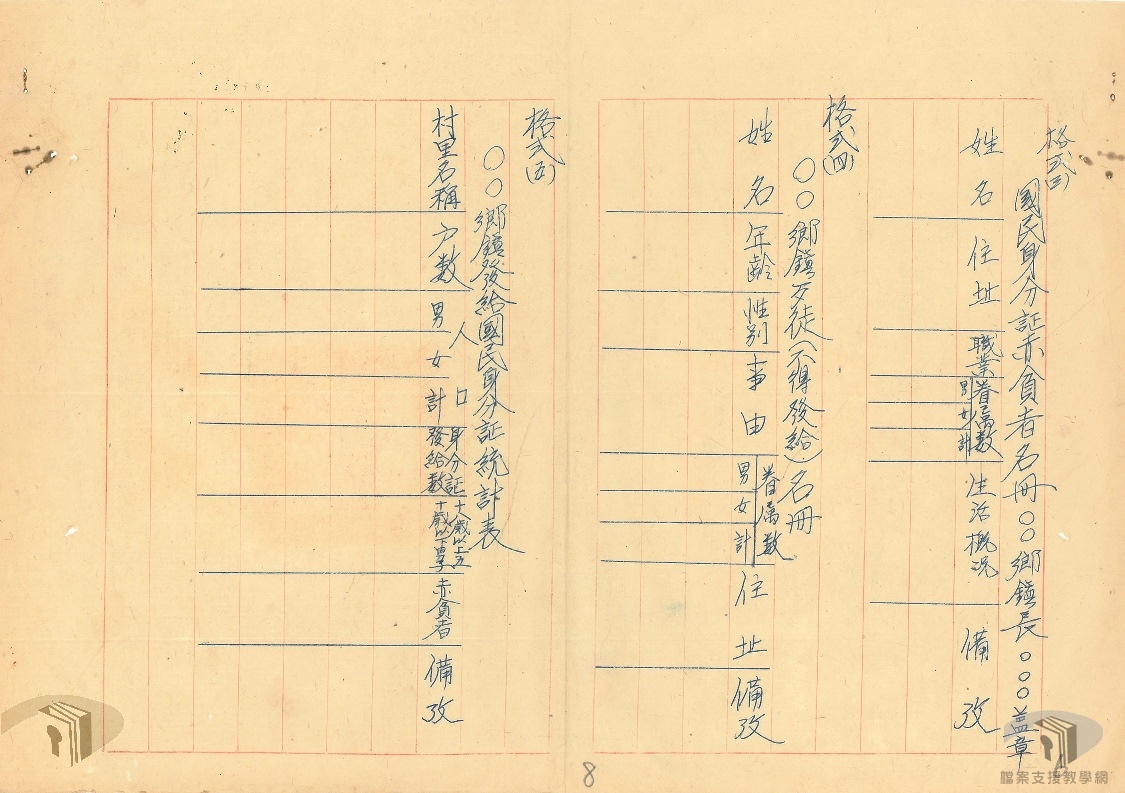 格式(三)
國民身分証赤貧者名冊○○鄉鎮長○○○蓋章
姓名
住址
職業
眷屬數
男
女
計
生活概況
備攷
格式(四)
○○鄉鎮歹徒(不得發給)名冊
姓名
年齡
性別
事由
眷屬數
男
女
計
住址
備攷
格式(五)
○○鄉鎮發給國民身分証統計表
村里名稱
戶數
人口
男
女
計
身分証
發給數
十八歲以上五
十歲以下男子
赤貧者
備攷
8
檔案支援教學網